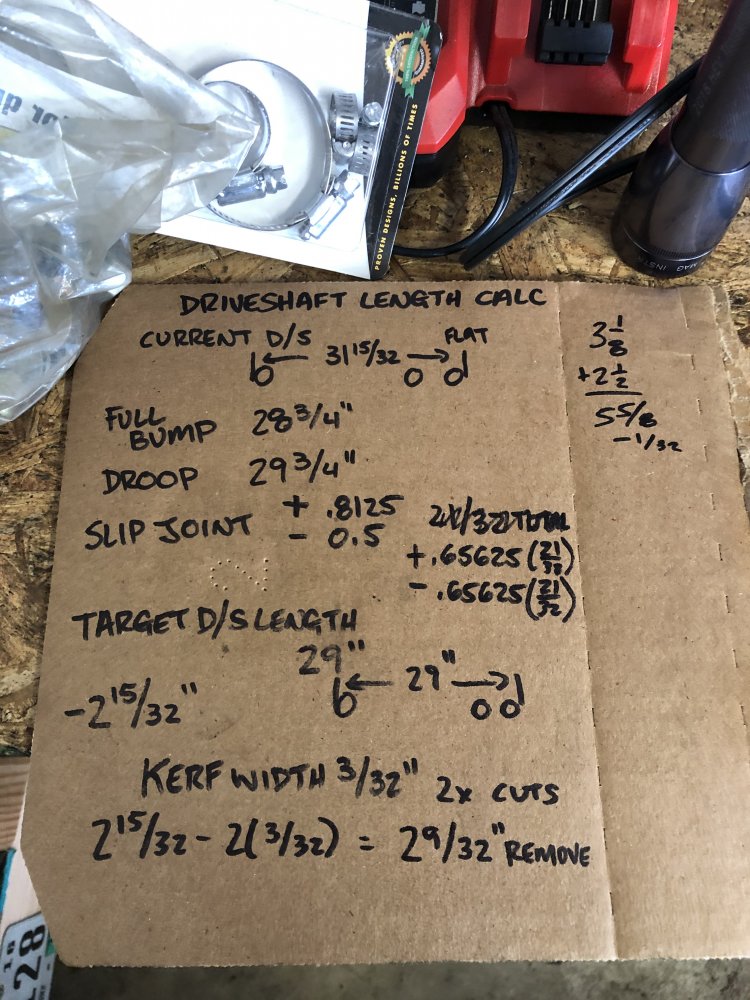 PROVEN DESIGNS, BILLIONS OF TIMES
MAG INST
DRIVESHAFT LENGTH CALC
CURRENT D/S
FLAT
31 15/32
FULL BUMP 28 3/4"
DROOP 29 3/4"
SLIP JOINT + .8125
- 0.5
TOTAL
+.65625 (21/32)
-.65625 (21/32)
TARGET D/S LENGTH
29"
29"
-2 15/32"
KERF WIDTH 3/32" 2x CUTS
2 15/32 - 2(3/32) = 2 9/32" REMOVE
3 1/8
+2 1/2
5 5/8
-1/32
28